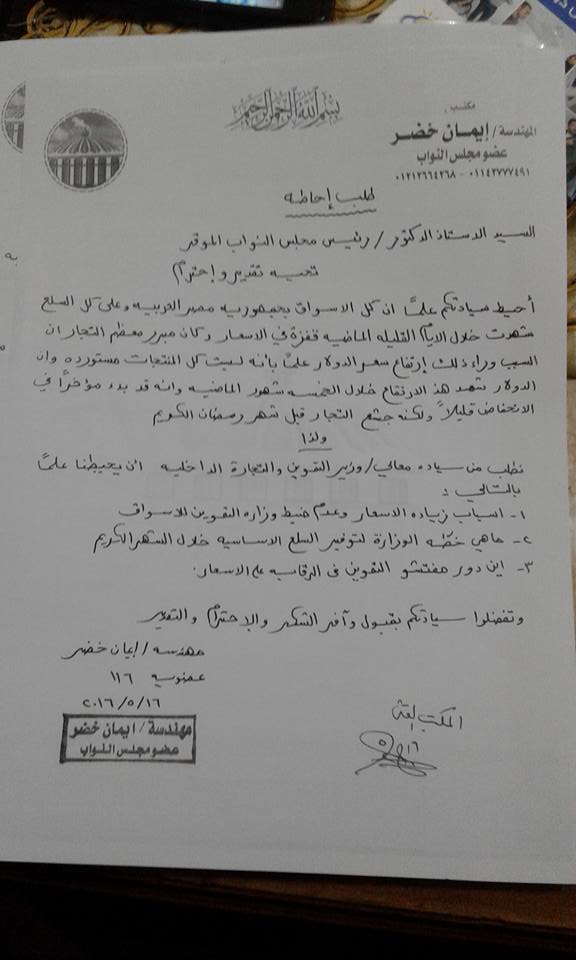 بسم الله الرحمن الرحيم
مكتب
المهندسة / إيمان خضر
عضو مجلس النواب
٠١١٤٣٧٧٧٤٩١ - ٠١٢١٢٦٦٤٢٦٨
طلب إحاطه
السيد الاستاذ الدكتور / رئيس مجلس النواب الموقر
تحيه تقدير و إحترام
أحيط سيادتكم علماً ان كل الاسواق بجمهوريه مصر العربيه وعلى كل السلع
شهدت خلال الايام القليله الماضيه قفزة في الاسعار وكان مبرر معظم التجار ان
السبب وراء ذلك إرتفاع سعر الدولار علماً بأنه ليست كل المنتجات مستورده وان
الدولار شهد هذ الارتفاع خلال الخمسه شهور الماضيه وانه قد بدء مؤخراً في
الانخفاض قليلاً ولكنه جشع التجار قبل شهر رمضان الكريم
ولذا
نطلب من سياده معالي / وزير التموين والتجارة الداخليه ان يحيطنا علماً
بالتالي :
١- اسباب زياده الاسعار وعدم ضبط وزاره التموين للاسواق
٢- ماهي خطه الوزارة لتوفير السلع الاساسيه خلال الشهر الكريم
٣- اين دور مفتشو التموين فى الرقابه على الاسعار.
وتفضلوا سيادتكم بقبول وآفر الشكر والإحترام والتقدير
مهندسه / إيمان خضر
عضويه ١١٦
٢٠١٦/٥/١٦
مهندسة / ايمان خضر
عضو مجلس النواب
المكتب الفنى